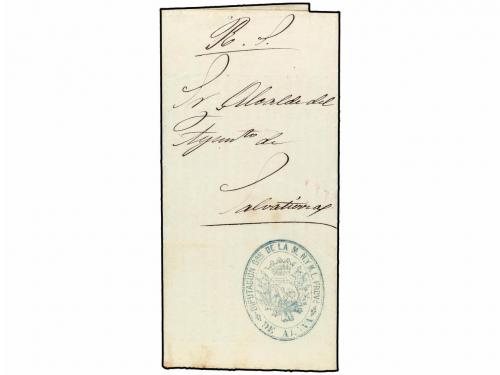 R. S.
Sr. Alcalde del
Ayuntto de
Salvatierra
DIPUTACION GRAL DE LA M. N. Y M. L. PROVA
DE ALAVA